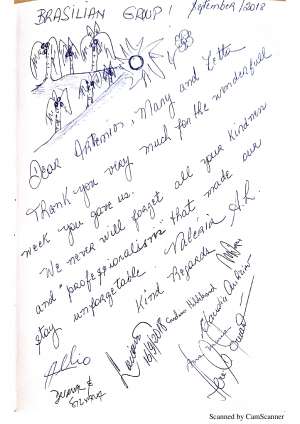 BRASILIAN GROUP!
September/2018
Dear Artemios, Mary and
Thank you very much for the wonderfull
week you gave us.
We never will forget all your kindness
and "professionalism" that made our
stay unforgetable.
Kind Regards
Valéria A.R.
Luciano
16/9/2018
Claudia
SILVANA
Scanned by CamScanner